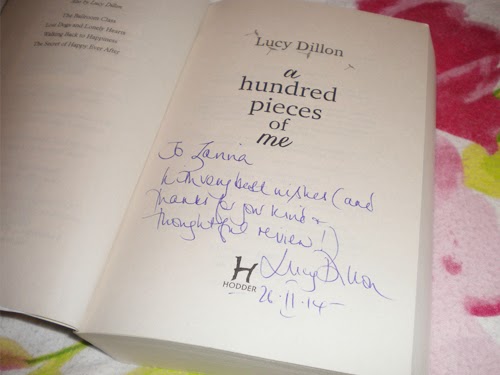 also by Lucy Dillon
The Ballroom Class
Lost Dogs and Lonely Hearts
Walking Back to Happiness
The Secret of Happy Ever After
Lucy Dillon
a
hundred
pieces
of
me
To Zannia
With very best wishes (and
thanks for your kind +
thoughtful review!)
Lucy Dillon
H
HODDER
26·11·14